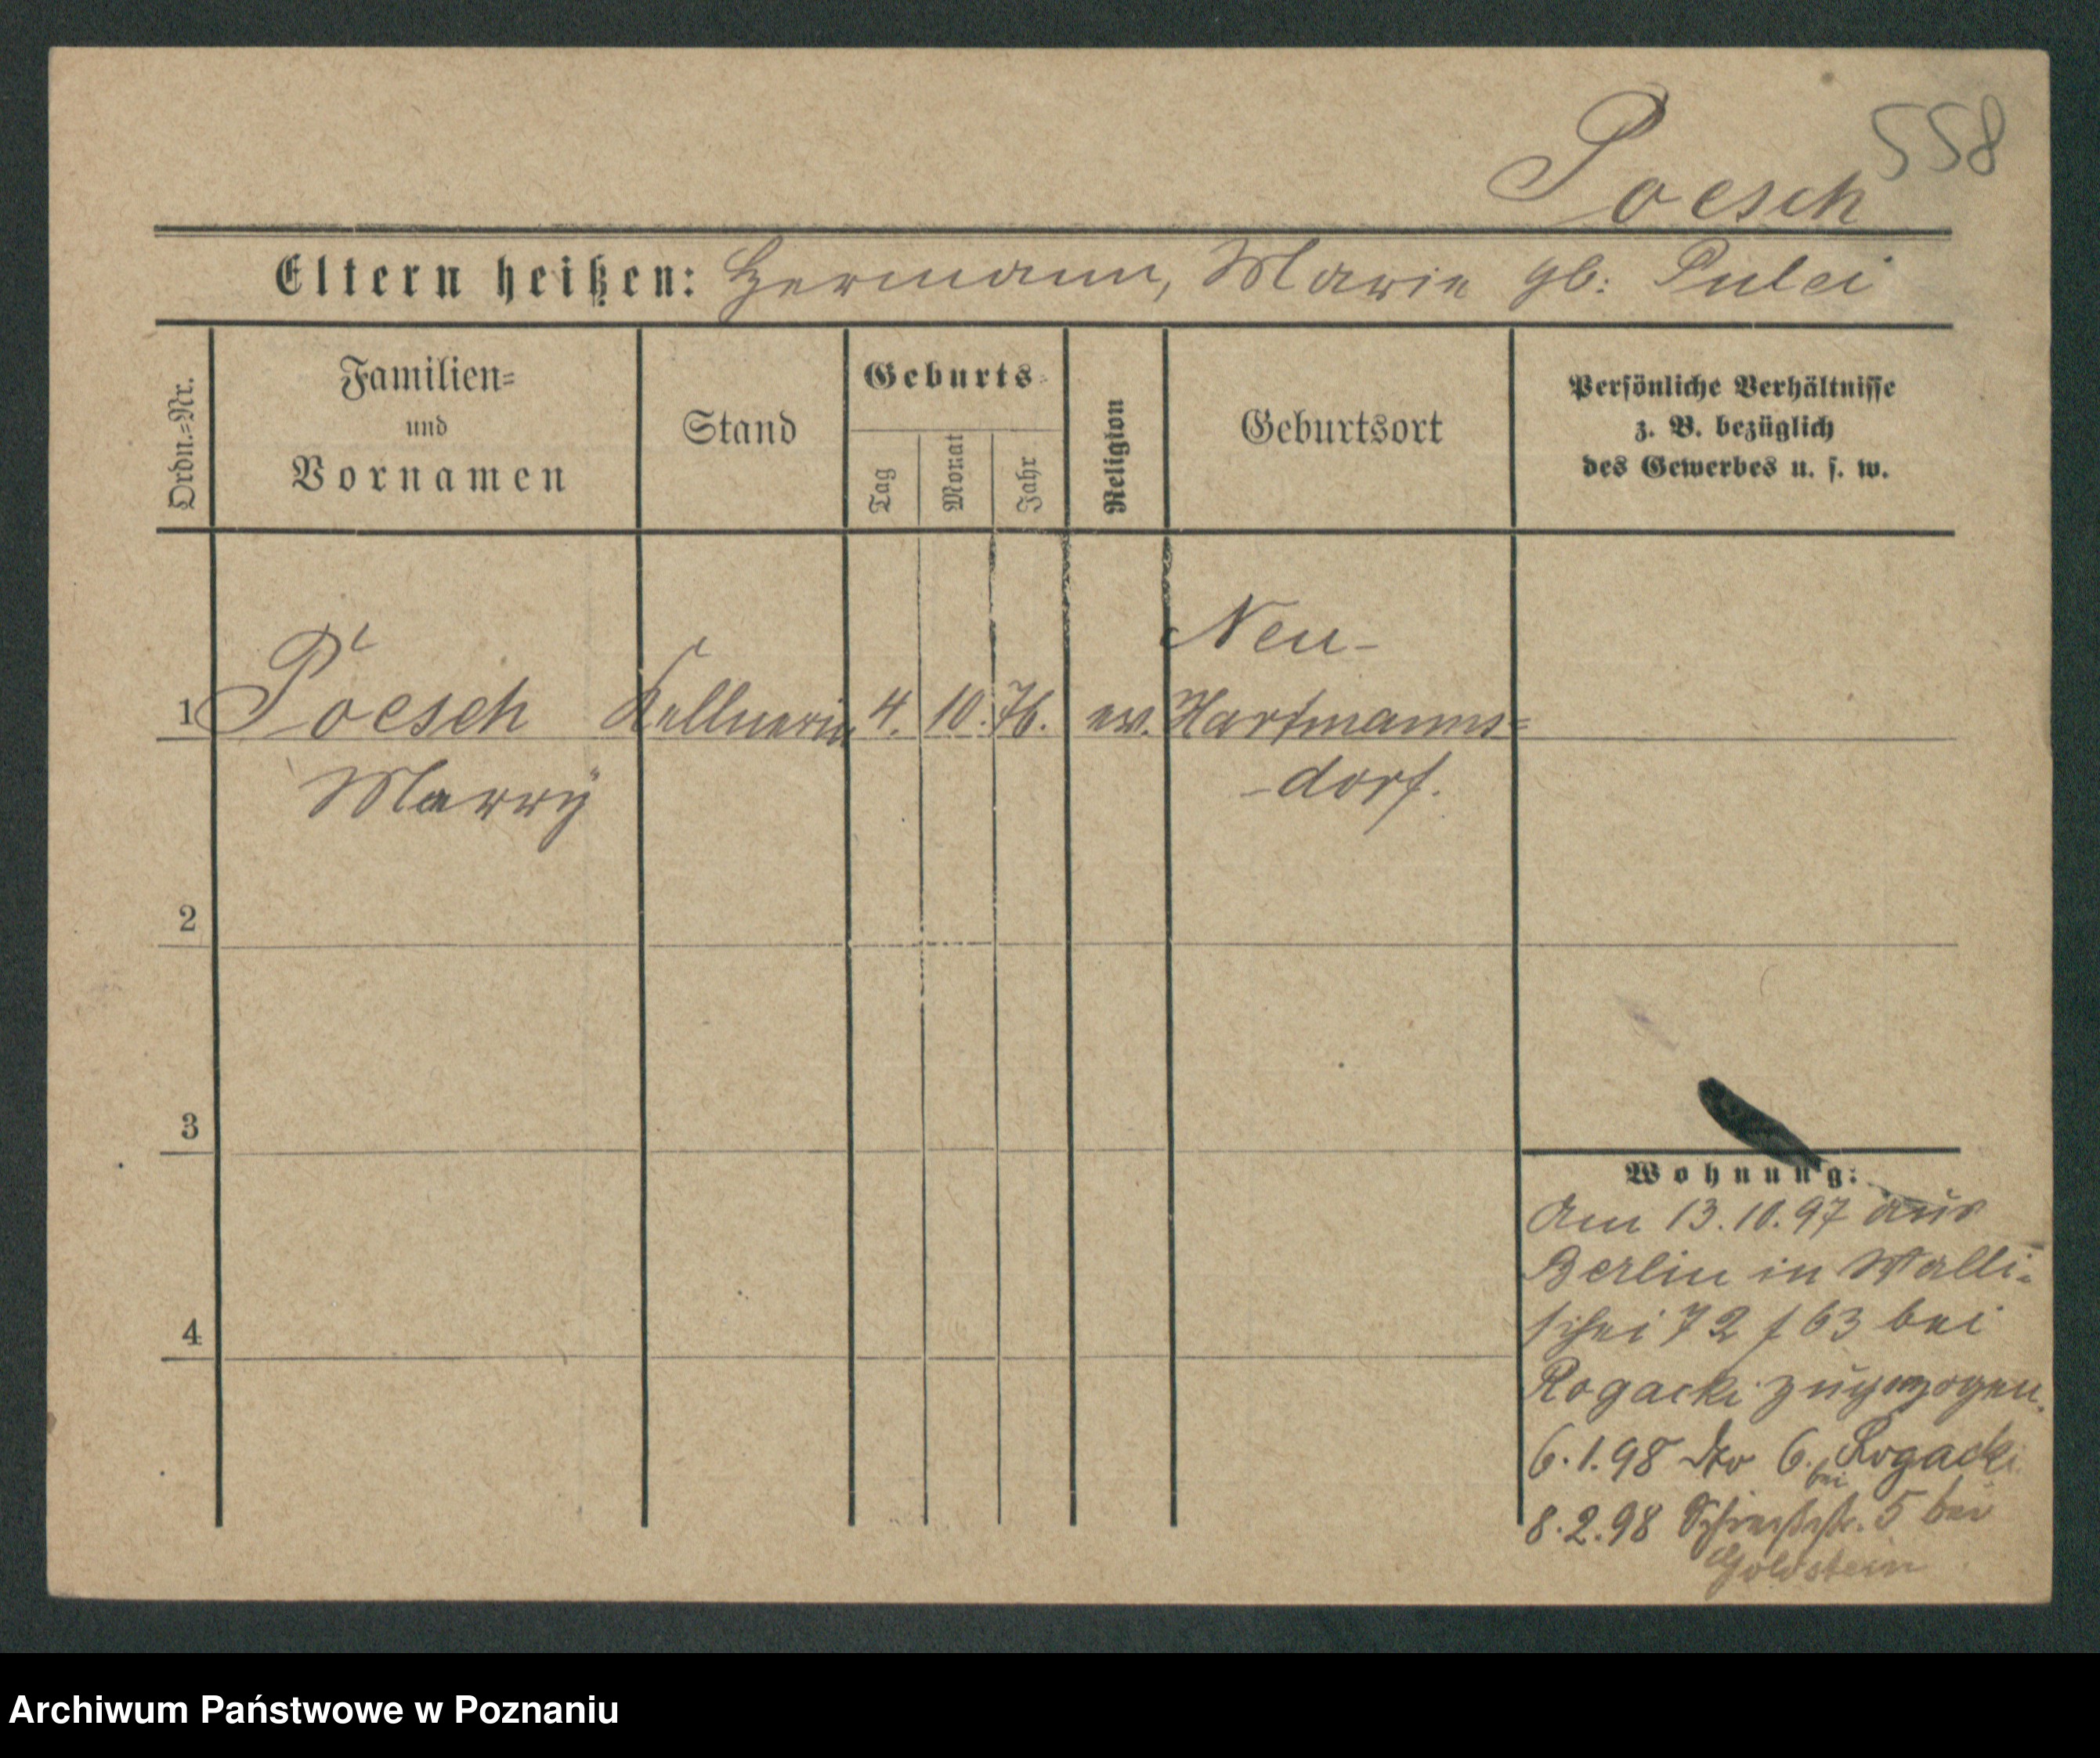 558
Poesch
Eltern heißen: Hermann, Marie gb: Pulei
Ordn.=Nr.
Familien=
und
Vornamen
Stand
Geburts=
Tag
Monat
Jahr
Religion
Geburtsort
Persönliche Verhältnisse
z. B. bezüglich
des Gewerbes u. s. w.
Neu-
1 Poesch Kellnerin 4. 10. 76. ev. Hartmanns=
Marry -dorf.
2
3
4
Wohnung:
Am 13.10.97 aus
Berlin in Walli-
schei 72 f 63 bei
Rogacki zugezogen.
6.1.98 dto 6. bei Rogacki
8.2.98 5 bei
Goldstein
Archiwum Państwowe w Poznaniu